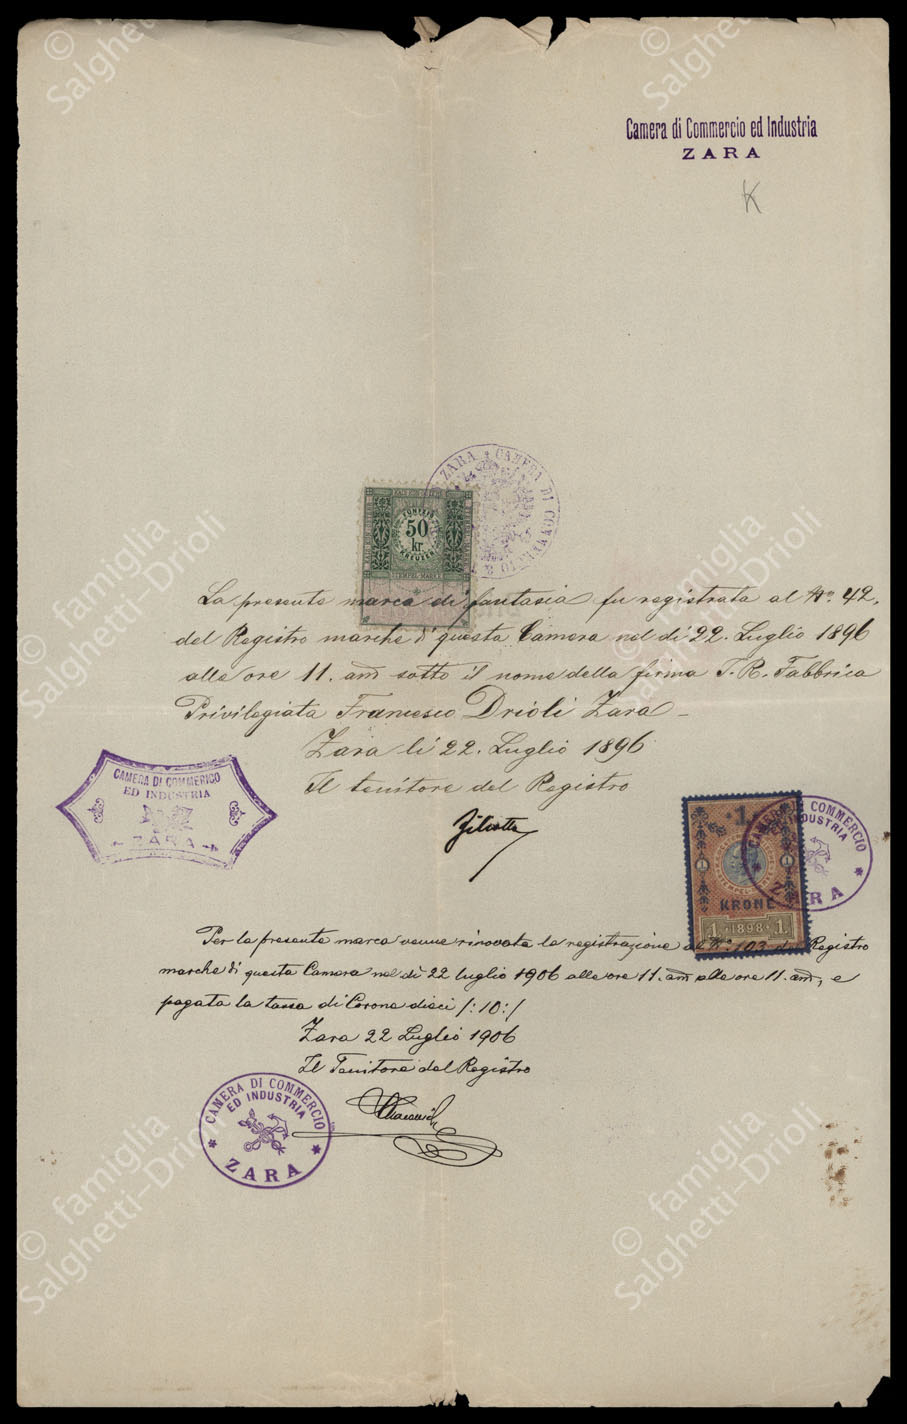 Camera di Commercio ed Industria
ZARA
K
ZARA * CAMERA DI COMMERCIO
FÜNFZIG
50
kr
KREUZER
STEMPEL-MARKE
La presente marca di fantasia fu registrata al No. 42.
del Registro marche di questa Camera nel dì 22. Luglio 1896
alle ore 11. am sotto il nome della firma I. R. Fabbrica
Privilegiata Francesco Drioli Zara
Zara lì 22. Luglio 1896
Il tenitore del Registro
CAMERA DI COMMERICO
ED INDUSTRIA
ZARA
1
CAMERA DI COMMERCIO
ED INDUSTRIA
ZARA
1 1
KRONE
1 · 1898 · 1
Per la presente marca venne rinovata la registrazione al No. 103 del Registro
marche di questa Camera nel dì 22 luglio 1906 alle ore 11. am alle ore 11. am, e
pagata la tassa di Corone dieci /:10:/
Zara 22 Luglio 1906
Il Tenitore del Registro
CAMERA DI COMMERCIO
ED INDUSTRIA
* ZARA *
© famiglia
Salghetti-Drioli
© famiglia
Salghetti-Drioli
© famiglia
Salghetti-Drioli
© famiglia
Salghetti-Drioli